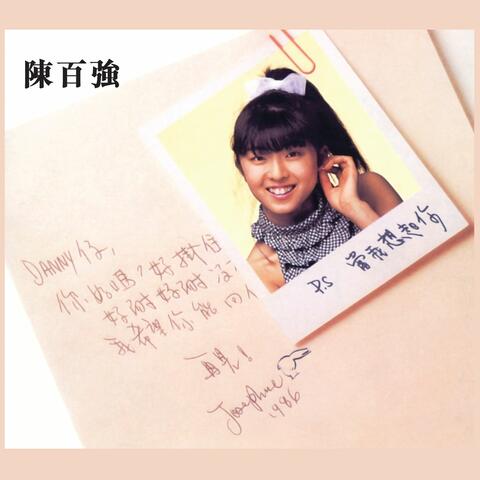 陳百強
DANNY仔,
你好嗎?好掛住
好耐好耐沒
我希望你能回
P.S 當我想起你
再見!
Josephine
1986